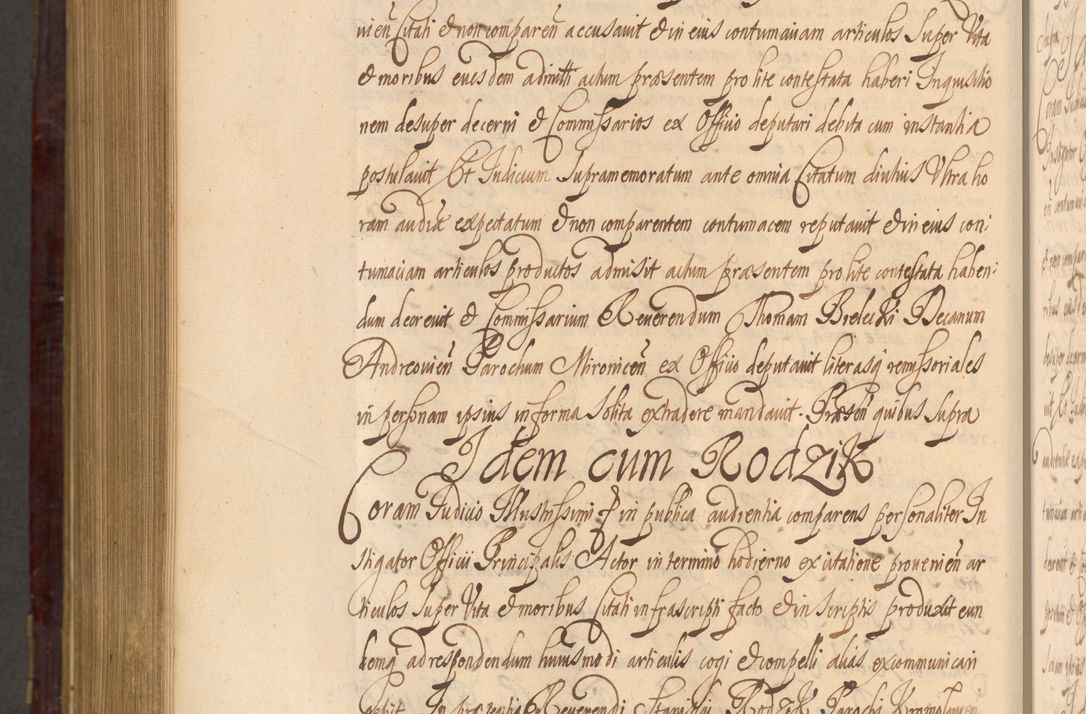 uien̄ Citati et non comparen̄ accusavit et in eius contumaciam articulos super Vita
et moribus eiusdem admitti actum præsentem pro lite contestata haberi Inquisitio
nem desuper decerni et Commissarios ex Officio deputari debita cum instantia
postulavit Et Judicium supramemoratum ante omnia Citatum diutius Ultra ho
ram audiæ expectatum et non comparentem contumacem reputavit et in eius con:
tumaciam articulos productos admisit actum præsentem pro lite contestata haben:
dum decrevit et Commissarium Reverendum Thomam Bielecki Decanum
Andreovien̄ Parochum Mironicen̄ ex Officio deputavit literasq̃ remissoriales
in personam ipsius in forma solita extradere mandavit. Præsen̄ quibus supra
Idem cum Rodzik
Coram Judicio Illustrissimi in publica audientia comparens personaliter In
stigator Officii Principalis Actor in termino hodierno ex citatione provenien̄ ar
ticulos super Vita et moribus Citati infrascripti facto et in scriptis produxit eun
demq̃ ad respondendum huiusmodi articulis cogi et compelli alias excommunicari
petiit In præsentia Reverendi Stanislai Rodzik Parochi